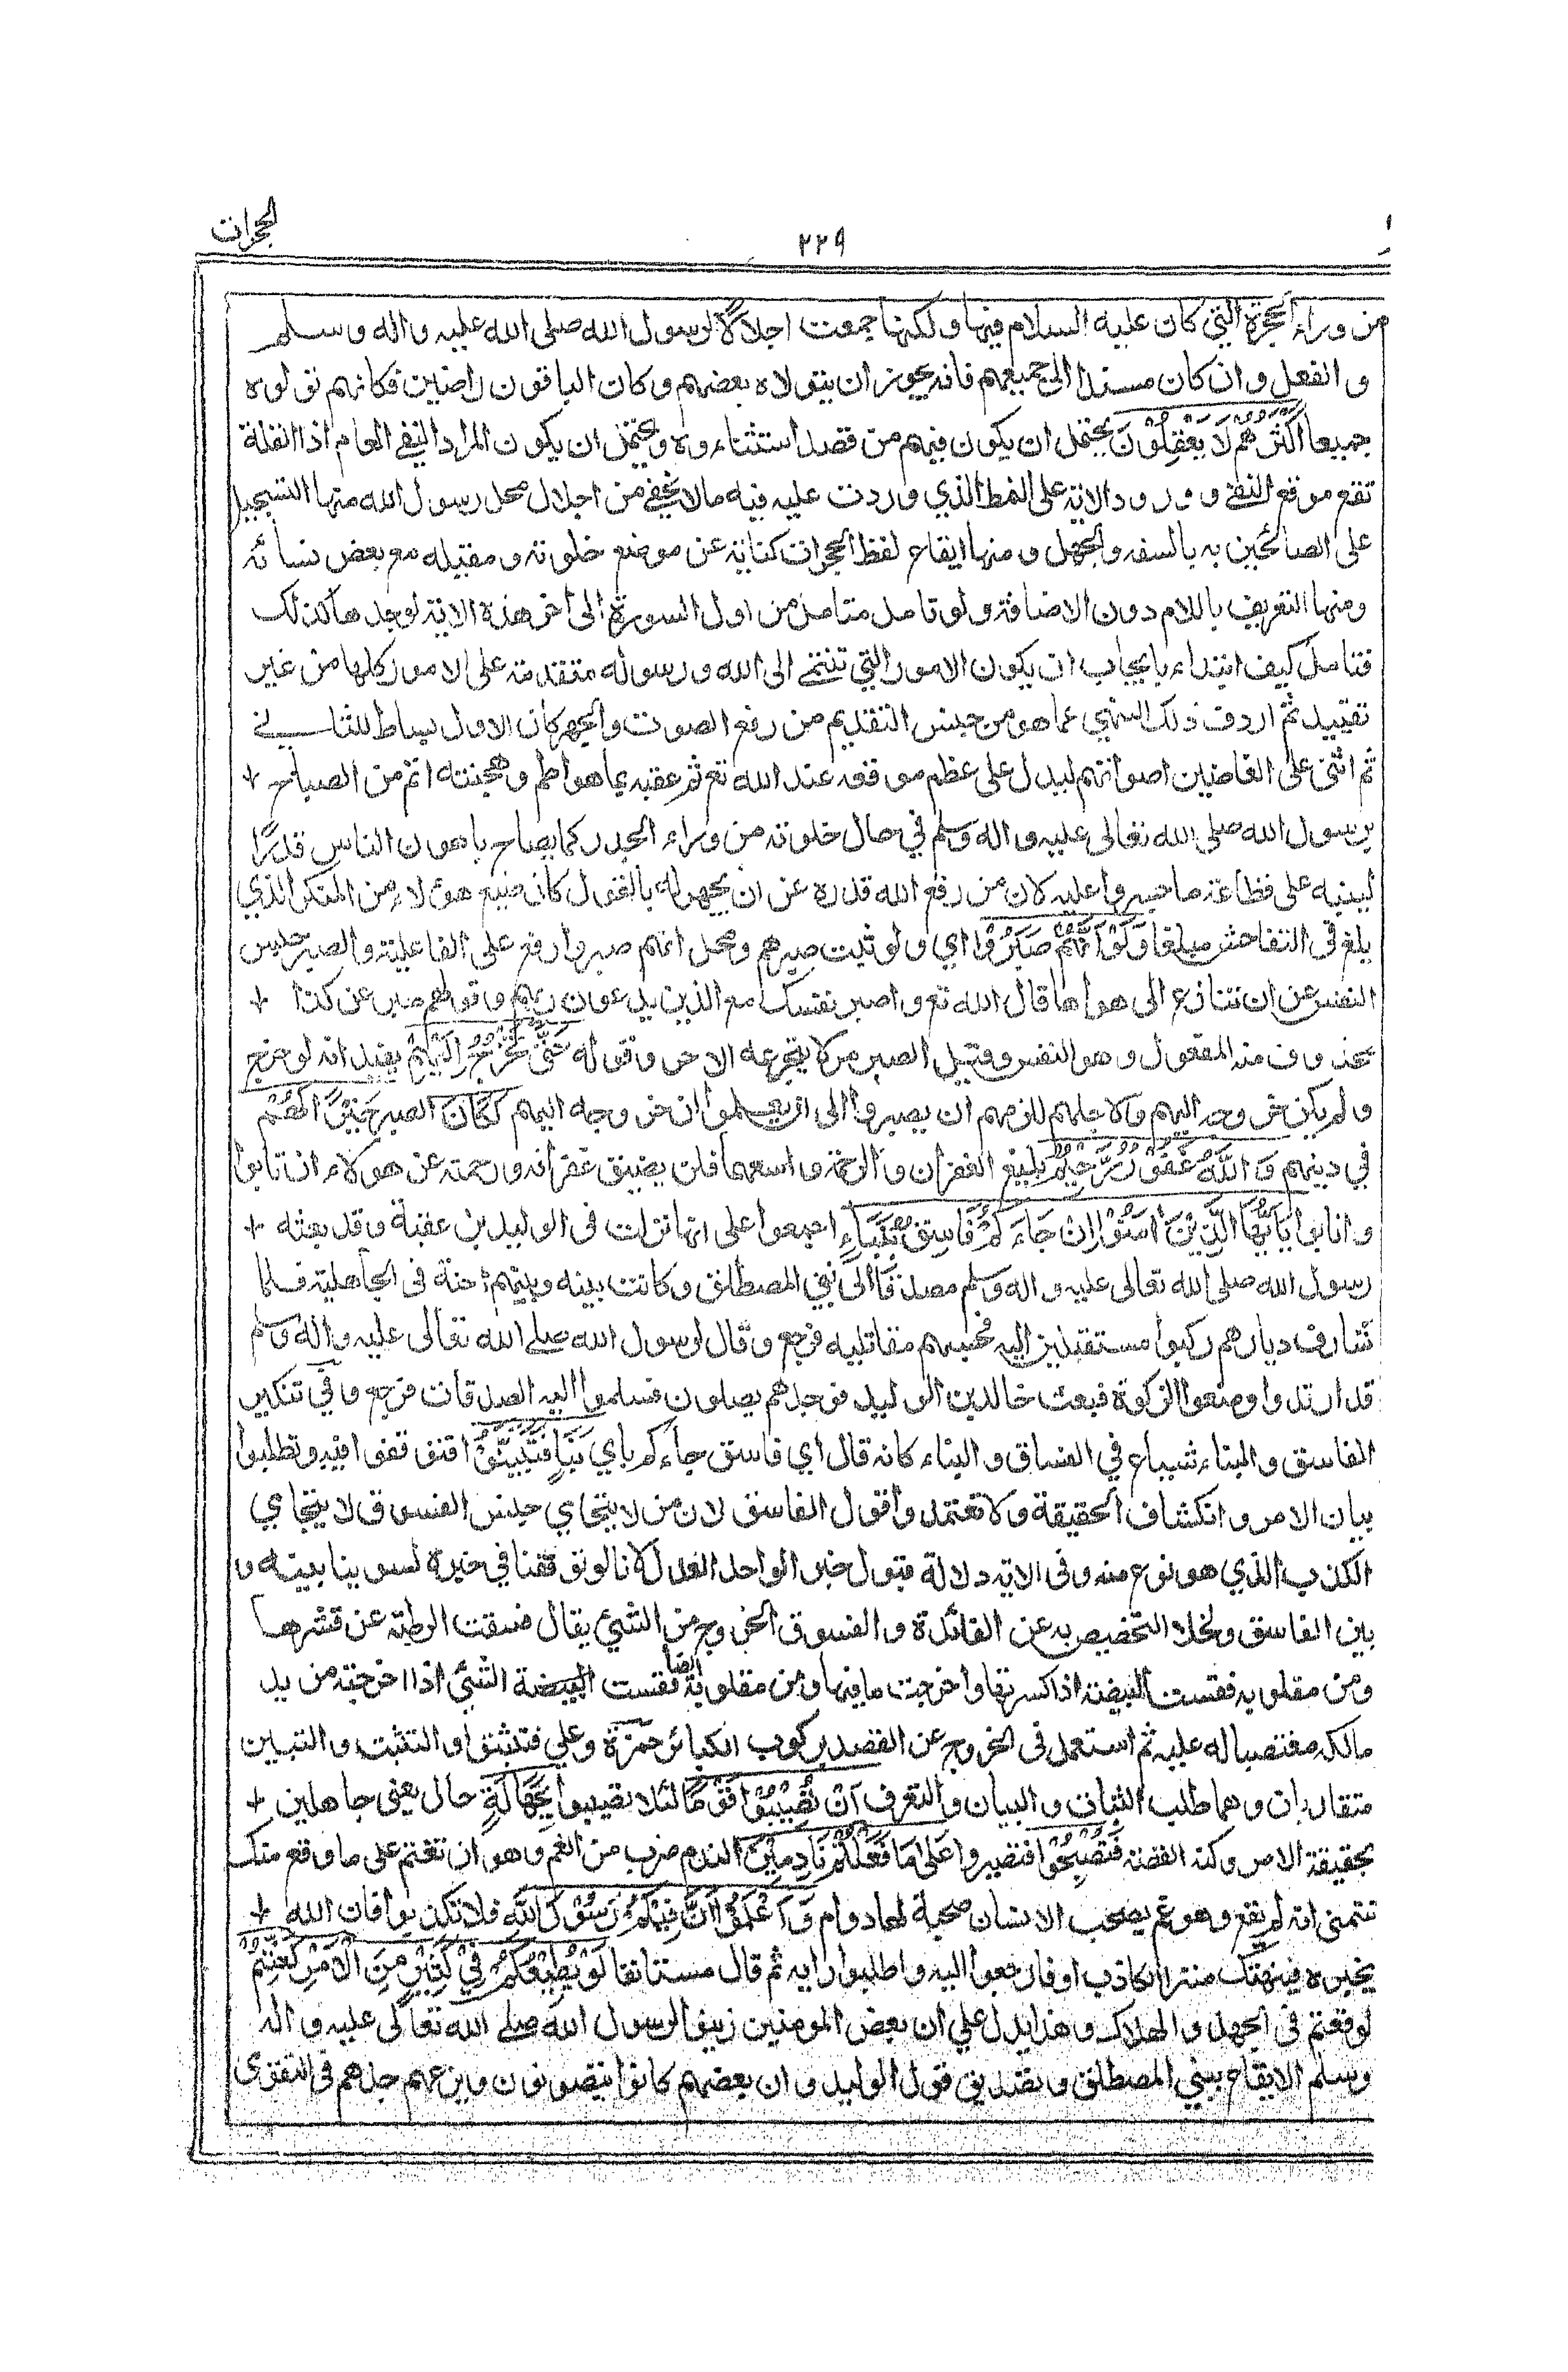 الحجرات
٢٢٩
من وراء الحجرة التي كان عليه السلام فيها ولكنها جمعت اجلالا لرسول الله صلى الله عليه واله وسلم
والفعل وان كان مسندا الى جميعهم فانه يجوز ان يتولاه بعضهم وكان الباقون راضين فكانهم تولوه
جميعا اَكْثَرُهُمْ لَا يَعْقِلُوْنَ يحتمل ان يكون فيهم من قصد استثناءه ويحتمل ان يكون المراد النفي العام اذا القلة
تقع موقع النفي وورود الاية على النمط الذي وردت عليه فيه مالا يخفى من اجلال محل رسول الله منها التسجيل
على الصائحين به بالسفه والجهل ومنها ايقاع لفظ الحجرات كناية عن موضع خلوته ومقيله مع بعض نسائه
ومنها التعريف باللام دون الاضافة ولو تامل متامل من اول السورة الى اخر هذه الاية لوجدها كذلك
فتامل كيف ابتداء بايجاب ان يكون الامور التي تنتمي الى الله ورسوله متقدمة على الامور كلها من غير
تقييد ثم اردف ذلك النهي عما هو من جنس التقديم من رفع الصوت والجهر كان الاول بساط للثاني
ثم اثنى على الغاضين اصواتهم ليدل على عظم موقعه عند الله تع ثم عقبه بما هو اطم وهجنته اتم من الصياح +
برسول الله صلى الله تعالى عليه واله وسلم في حال خلوته من وراء الجدر كما يصاح باهون الناس قدرًا
لينبه على فظاعة ما جسروا عليه لان من رفع الله قدره عن ان يجهر له بالقول كان صنيع هؤلاء من المنكر الذي
بلغ في التفاحش مبلغا وَلَوْ اَنَّهُمْ صَبَرُوْا اي ولو ثبت صبرهم ومحل انهم صبروا رفع على الفاعلية والصبر حبس
النفس عن ان تنازع الى هواها قال الله تع واصبر نفسك مع الذين يدعون ربهم وقولهم صبر عن كذا +
محذوف منه المفعول وهو النفس وقيل الصبر مر لا يتجرعه الا حر وقوله حَتّٰى تَخْرُجَ اِلَيْهِمْ يفيد انه لو خرج
ولم يكن خروجه اليهم ولاجلهم للزمهم ان يصبروا الى ان يعلموا ان خروجه اليهم لَكَانَ الصبر خَيْرًا لَّهُمْ
في دينهم وَاللّٰهُ غَفُوْرٌ رَّحِيْمٌ بليغ الغفران والرحمة واسعهما فلن يضيق غفرانه ورحمته عن هولاء ان تابوا
وانابوا يٰاَيُّهَا الَّذِيْنَ اٰمَنُوْا اِنْ جَاءَكُمْ فَاسِقٌ بِنَبَاءٍ اجمعوا على انها نزلت فى الوليد بن عقبة وقد بعثه +
رسول الله صلى الله تعالى عليه واله وسلم مصدقا الى بني المصطلق وكانت بينه وبينهم احنة فى الجاهلية فلما
شارف ديارهم ركبوا مستقبلين اليه فحسبهم مقاتليه فرجع وقال لرسول الله صلى الله تعالى عليه واله وسلم
قد ارتدوا ومنعوا الزكوة فبعث خالد بن الوليد فوجدهم يصلون فسلموا اليه الصدقات فرجع وفي تنكير
الفاسق والنباء شياع في الفساق والنباء كانه قال اي فاسق جاءكم باي نبإ فَتَبَيَّنُوْا فتوقفوا فيه وتطلبوا
بيان الامر وانكشاف الحقيقة ولا تعتمدوا قول الفاسق لان من لا يتحامي جنس الفسوق لا يتحامي
الكذب الذي هو نوع منه وفى الاية دلالة قبول خبر الواحد العدل لانا لو توقفنا في خبره لسوينا بينه و
بين الفاسق ولخلا التخصيص به عن الفائدة والفسوق الخروج من الشيئ يقال فسقت الرطبة عن قشرها
ومن مقلوبه فقست البيضة اذا كسرتها واخرجت ما فيها ومن مقلوبه ايضا قفست الشيئ اذا اخرجته من يد
مالكه مغتصبا له عليه ثم استعمل فى الخروج عن القصد بركوب الكبائر حمزة وعلي فتثبتوا والتثبت والتبين
متقاربان وهما طلب الثبات والبيان والتعرف اَنْ تُصِيْبُوْا قَوْمًا لئلا تصيبوا بِجَهَالَةٍ حال يعني جاهلين +
بحقيقة الامر وكنه القصة فَتُصْبِحُوْا فتصيروا عَلٰى مَا فَعَلْتُمْ نَادِمِيْنَ الندم ضرب من الغم وهو ان تغتم على ما وقع منك
تتمنى انه لم يقع وهو غم يصحب الانسان صحبة لها دوام وَاعْلَمُوْا اَنَّ فِيْكُمْ رَسُوْلَ اللّٰهِ فلا تكذبوا فان الله +
يخبره فينهتك ستر الكاذب او فارجعوا اليه واطلبوا رايه ثم قال مستانفا لَوْ يُطِيْعُكُمْ فِيْ كَثِيْرٍ مِنَ الْاَمْرِ لَعَنِتُّمْ
لوقعتم في الجهد والهلاك وهذا يدل علي ان بعض المومنين زينوا لرسول الله صلى الله تعالى عليه واله
وسلم الايقاع ببني المصطلق وتصديق قول الوليد وان بعضهم كانوا يتصونون ويزعهم جدهم فى التقوى